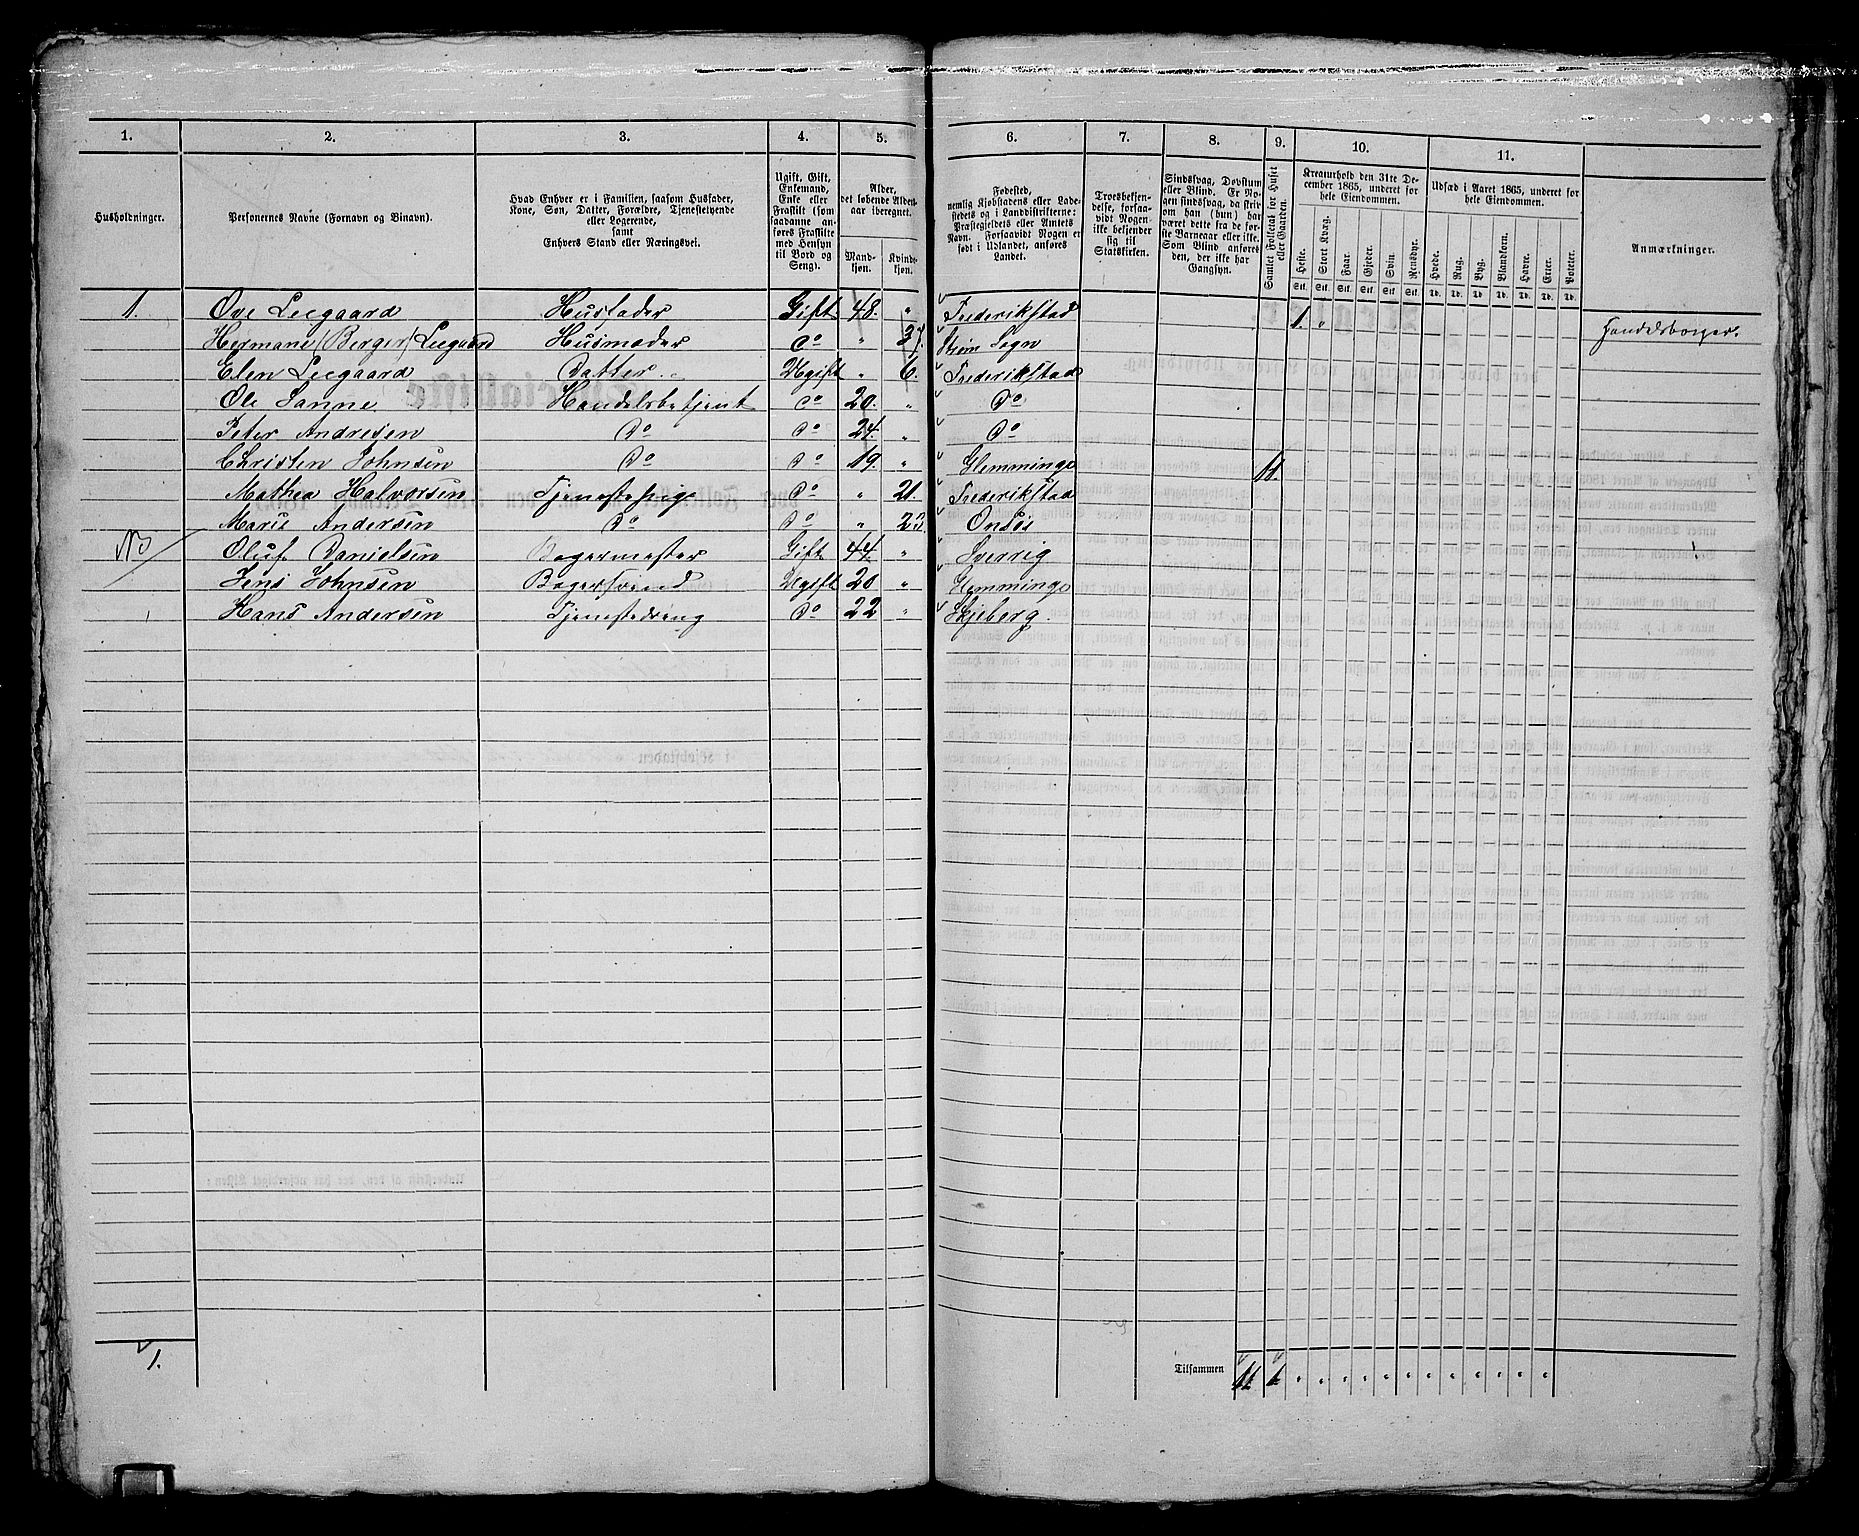 1. 2. 3. 4. 5. 6. 7. 8. 9. 10. 11.
Husholdninger.
Personernes Navne (Fornavn og Binavn).
Hvad Enhver er i Familien, saasom Husfader,
Kone, Søn, Datter, Forældre, Tjenestetyende
eller Logerende,
samt
Enhvers Stand eller Næringsvei.
Ugift, Gift,
Enkemand,
Enke eller
Fraskilt (som
saadanne an-
føres Fraskilte
med Hensyn
til Bord og
Seng).
Alder,
det løbende Alders-
aar iberegnet.
Mand-
kjøn.
Kvinde-
kjøn.
Fødested,
nemlig Kjøbstadens eller Lade-
stedets og i Landdistrikterne:
Præstegjeldets eller Amtets
Navn. Forsaavidt Nogen er
født i Udlandet, anføres
Landet.
Troesbekjen-
delse, forsaa-
vidt Nogen
ikke bekjender
sig til
Statskirken.
Sindssvag, Døvstum
eller Blind. Er No-
gen sindssvag, da skriv
om han (hun) har
været dette fra de før-
ste Barneaar eller ikke.
Som Blind anføres
den, der ikke har
Gangsyn.
Samlet Folketal for Huset
eller Gaarden.
Kreaturhold den 31te De-
cember 1865, underet for
hele Eiendommen.
Heste. Stort Kvæg. Faar. Gjeder. Svin. Rensdyr.
Stk. Stk. Stk. Stk. Stk. Stk.
Udsæd i Aaret 1865, underet for
hele Eiendommen.
Hvede. Rug. Byg. Blandkorn. Havre. Erter. Poteter.
Td. Td. Td. Td. Td. Td. Td.
Anmærkninger.
1. Ove Leegaard Husfader Gift 48. " Frederikstad 1. " Handelsborger.
Hermane (Berger) Leegaard Husmoder do " 37. Sogn
Elen Leegaard Datter Ugift " 6. Frederikstad
Ole Sanne Handelsbetjent do 20. " Do
Peter Andresen Do do 24. " Do
Christen Johnsen Do do 19. " Glemminge 11.
Mathea Halvorsen Tjenestepige do " 21. Frederikstad
Marie Andersen Do do " 23 Onsø
NB Oluf Danielsen Bagermester Gift 44. " Sverrig
Jens Johnsen Bagersvend Ugift 20 " Glemminge
Hans Andersen Tjenestedreng do 22 " Skjeberg.
1.
Tilsammen 11 1 " " " " " " " " " " "